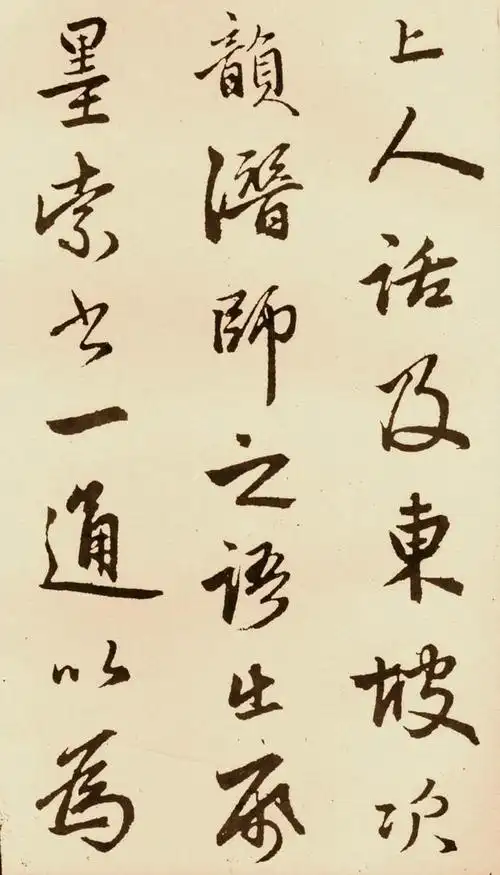 上人話及東坡次
韻潛師之語出帋
墨索書一通以為